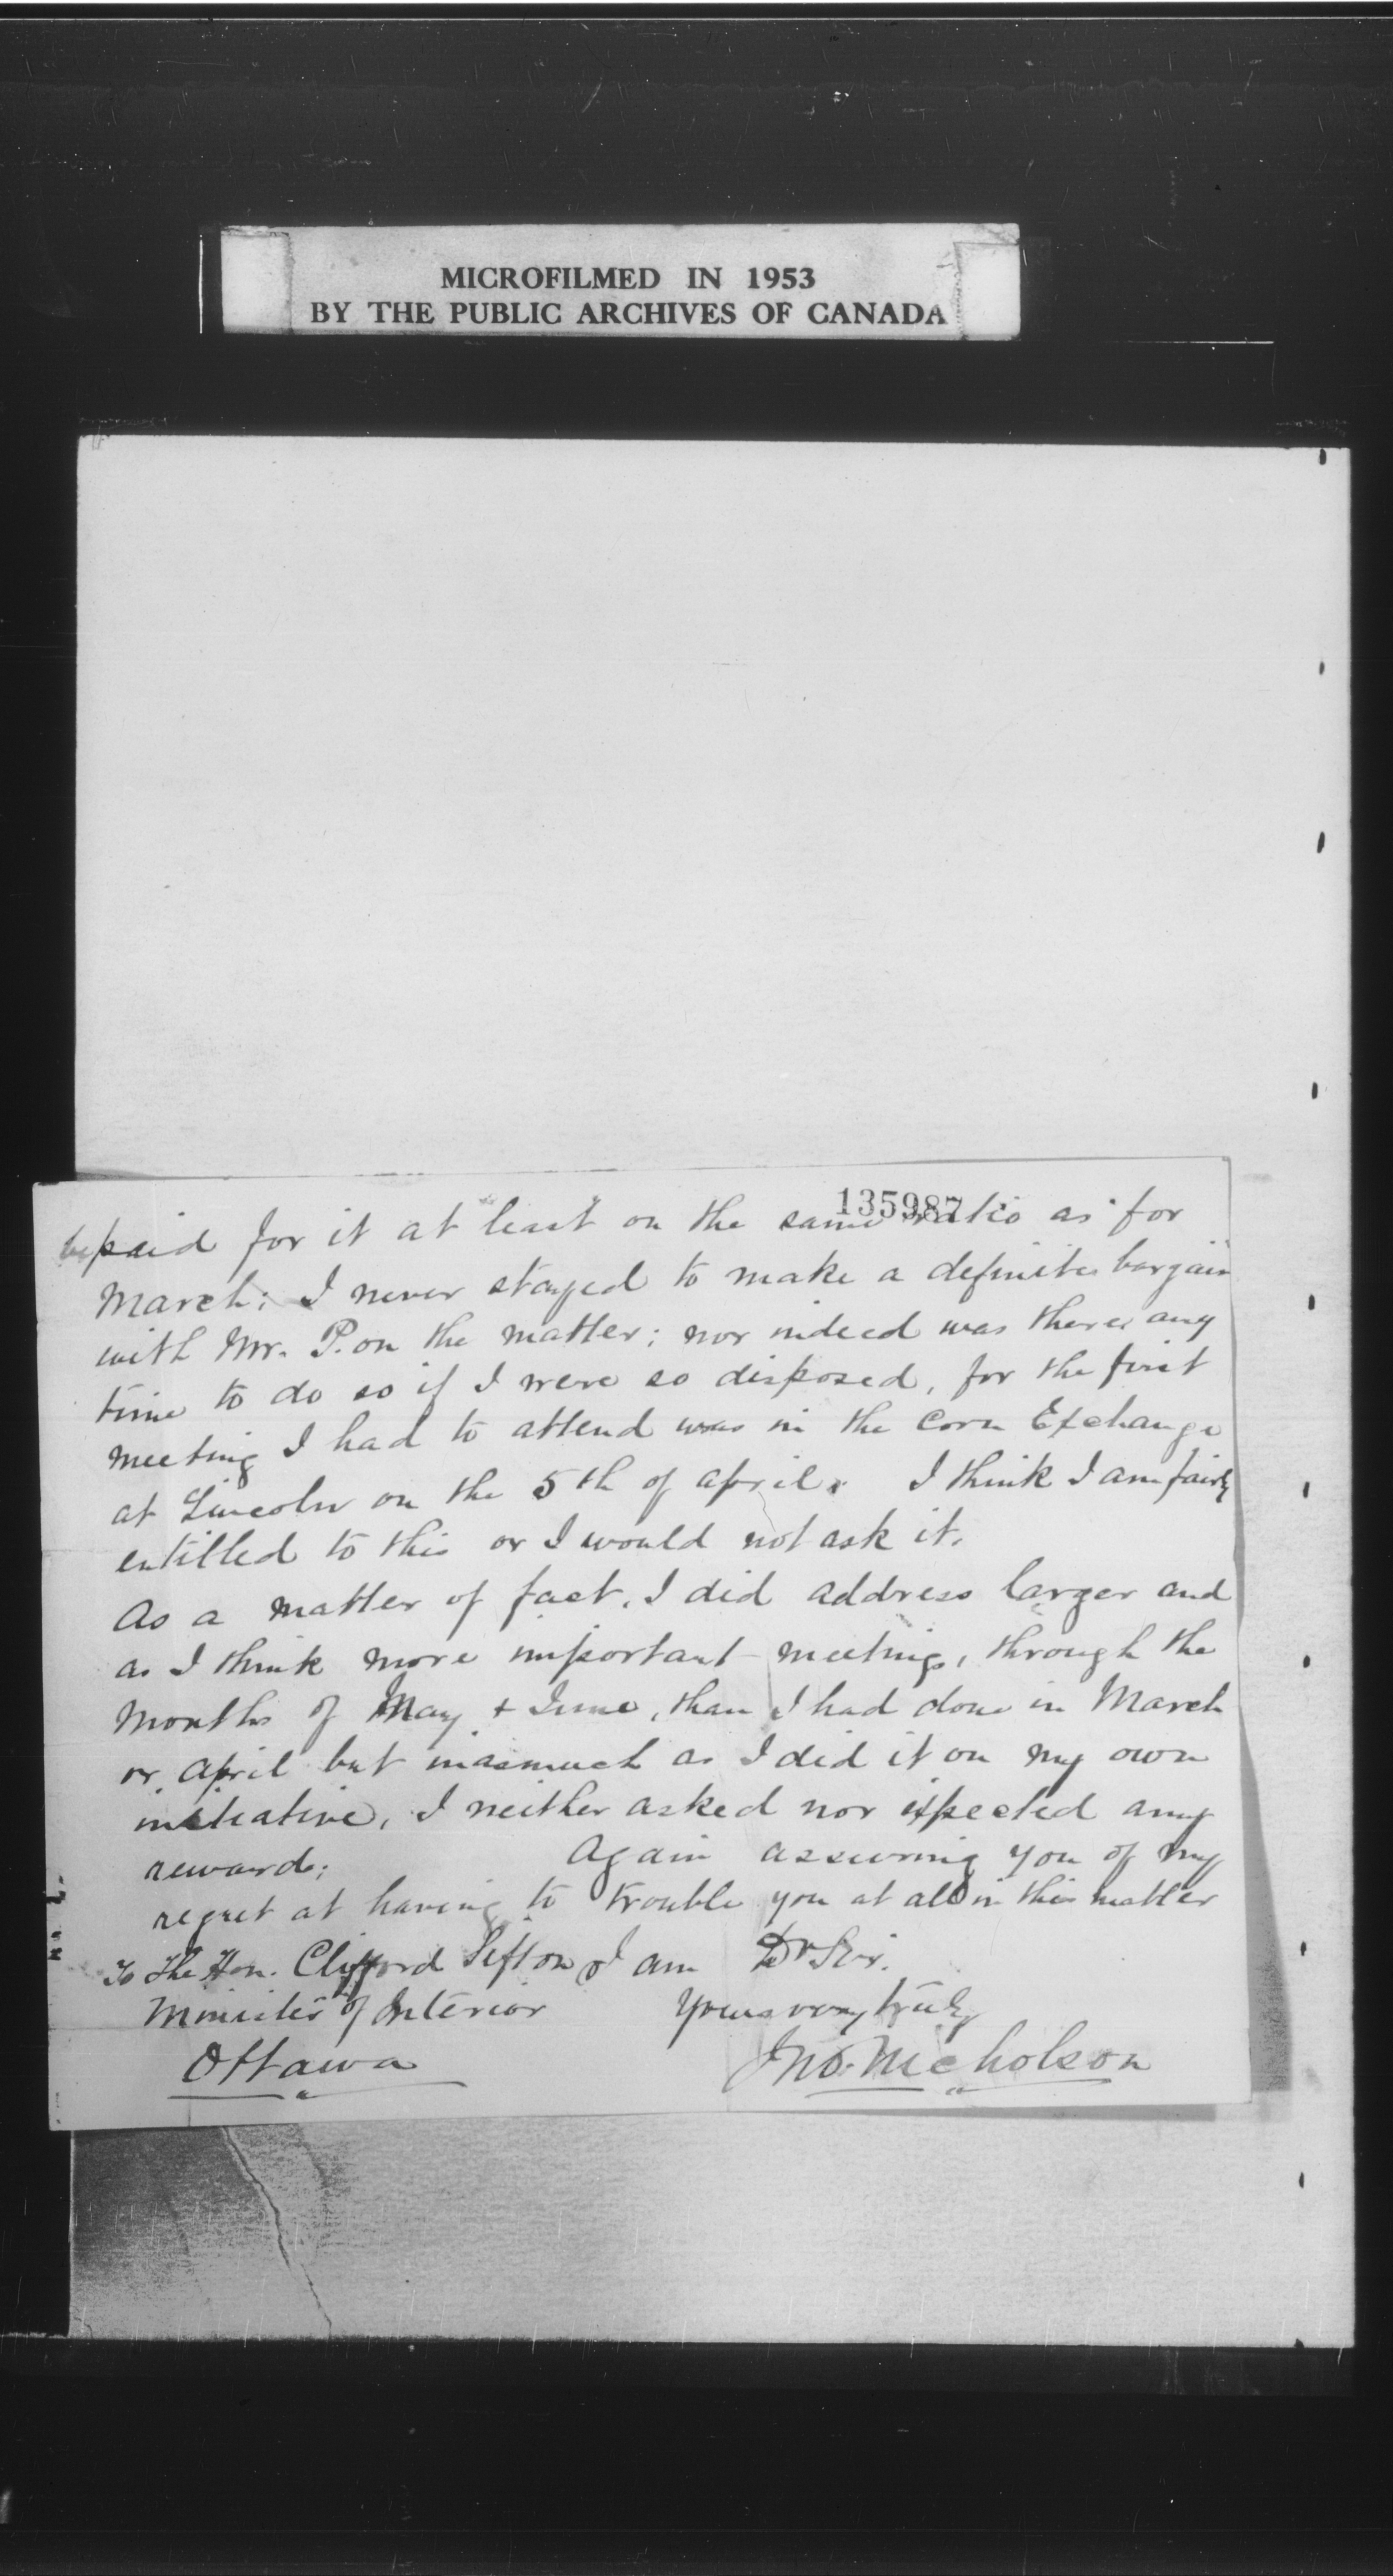 MICROFILMED IN 1953
BY THE PUBLIC ARCHIVES OF CANADA
135987
be paid for it at least on the same ratio as for
March; I never stayed to make a definite bargain
with Mr. P. on the matter; nor indeed was there any
time to do so if I were so disposed, for the first
meeting I had to attend was in the Corn Exchange
at Lincoln on the 5th of April. I think I am fairly
entitled to this or I would not ask it.
As a matter of fact, I did address larger and
as I think more important meetings, through the
months of May + June, than I had done in March
or April but inasmuch as I did it on my own
initiative, I neither asked nor expected any
reward; Again assuring you of my
regret at having to trouble you at all in this matter
To The Hon. Clifford Sifton I am Dr Sir.
Minister of Interior Yours very truly
Ottawa Jno. Nicholson